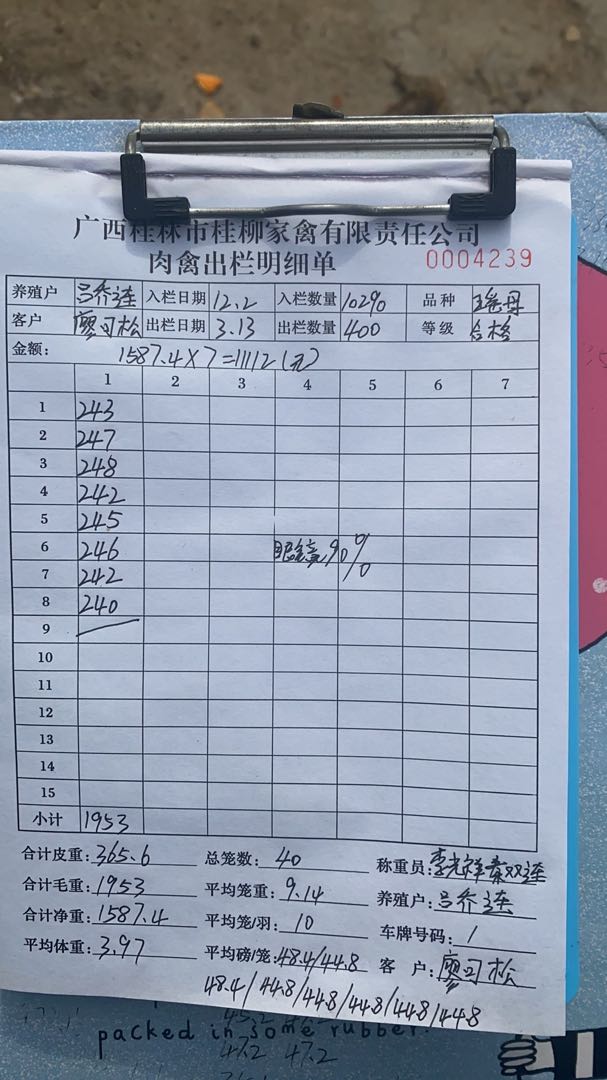 广西桂林市桂柳家禽有限责任公司
肉禽出栏明细单 0004239
养殖户 吕乔连 入栏日期 12.2 入栏数量 10290 品种
客户 廖可松 出栏日期 3.13 出栏数量 400 等级 合格
金额: 1587.4×7=11112(元)
1 2 3 4 5 6 7
1 243
2 247
3 248
4 242
5 245
6 246 90%
7 242
8 240
9
10
11
12
13
14
15
小计 1953
合计皮重: 365.6 总笼数: 40 称重员:
合计毛重: 1953 平均笼重: 9.14 养殖户: 吕乔连
合计净重: 1587.4 平均笼/羽: 10 车牌号码: /
平均体重: 3.97 平均磅/笼: 48.4/44.8 客 户: 廖可松
48.4/44.8/44.8/44.8/44.8/44.8
packed in some rubber
47.2 47.2